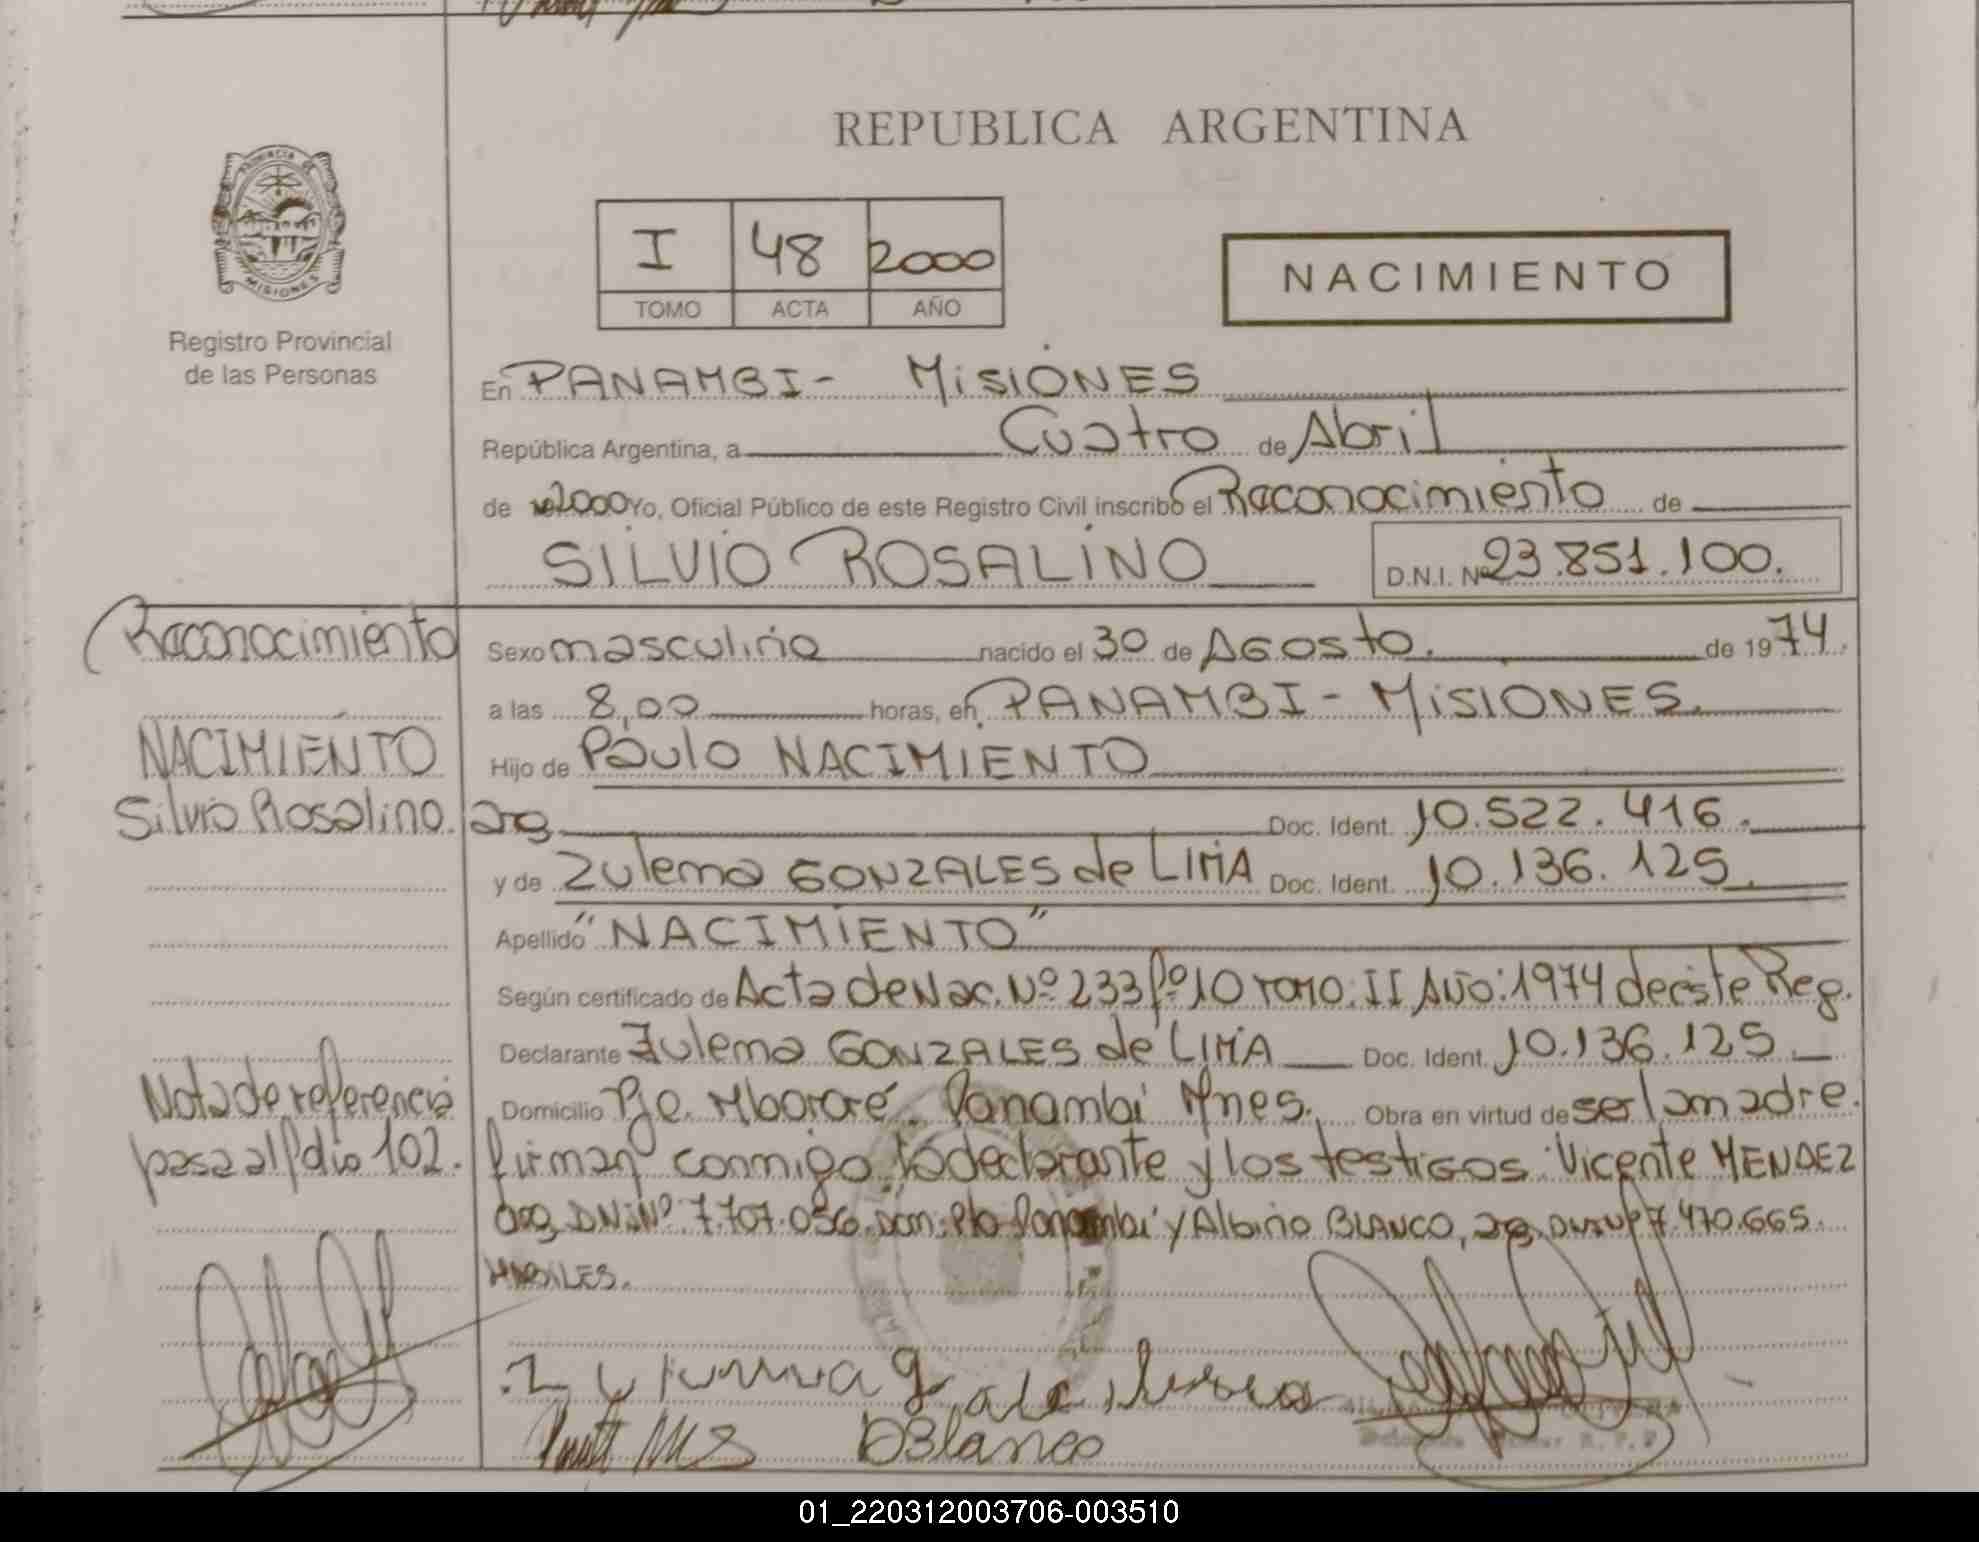 REPUBLICA ARGENTINA
PROVINCIA DE
MISIONES
Registro Provincial
de las Personas
I 48 2000
TOMO ACTA AÑO
NACIMIENTO
En PANAMBI - MISIONES
República Argentina, a Cuatro de Abril
de 2000 Yo, Oficial Público de este Registro Civil inscribo el Reconocimiento de
SILVIO ROSALINO D.N.I. Nº 23.851.100.
Reconocimiento
NACIMIENTO
Silvio Rosalino.
Sexo masculino nacido el 30 de AGosto. de 1974.
a las 8,00 horas, en PANAMBI - MISIONES.
Hijo de Paulo NACIMIENTO
arg Doc. Ident. 10.522.416.
y de Zulema GONZALES de LIMA Doc. Ident. 10.136.125.
Apellido "NACIMIENTO"
Según certificado de Acta de Nac. Nº 233 fº 10 TOMO: II AÑO: 1974 de este Reg.
Declarante Zulema GONZALES de LIMA Doc. Ident. 10.136.125
Nota de referencia
pasa al fdio 102.
Domicilio Pje. Mbororé. Panambí Mnes. Obra en virtud de ser la madre.
firman conmigo, la declarante y los testigos: Vicente MENDEZ
arg, DNI Nº 7.707.056. dom: Pto Panambí y Albino BLANCO, arg, DNI Nº 7.470.665.
HABILES.
Blanco
01_220312003706-003510